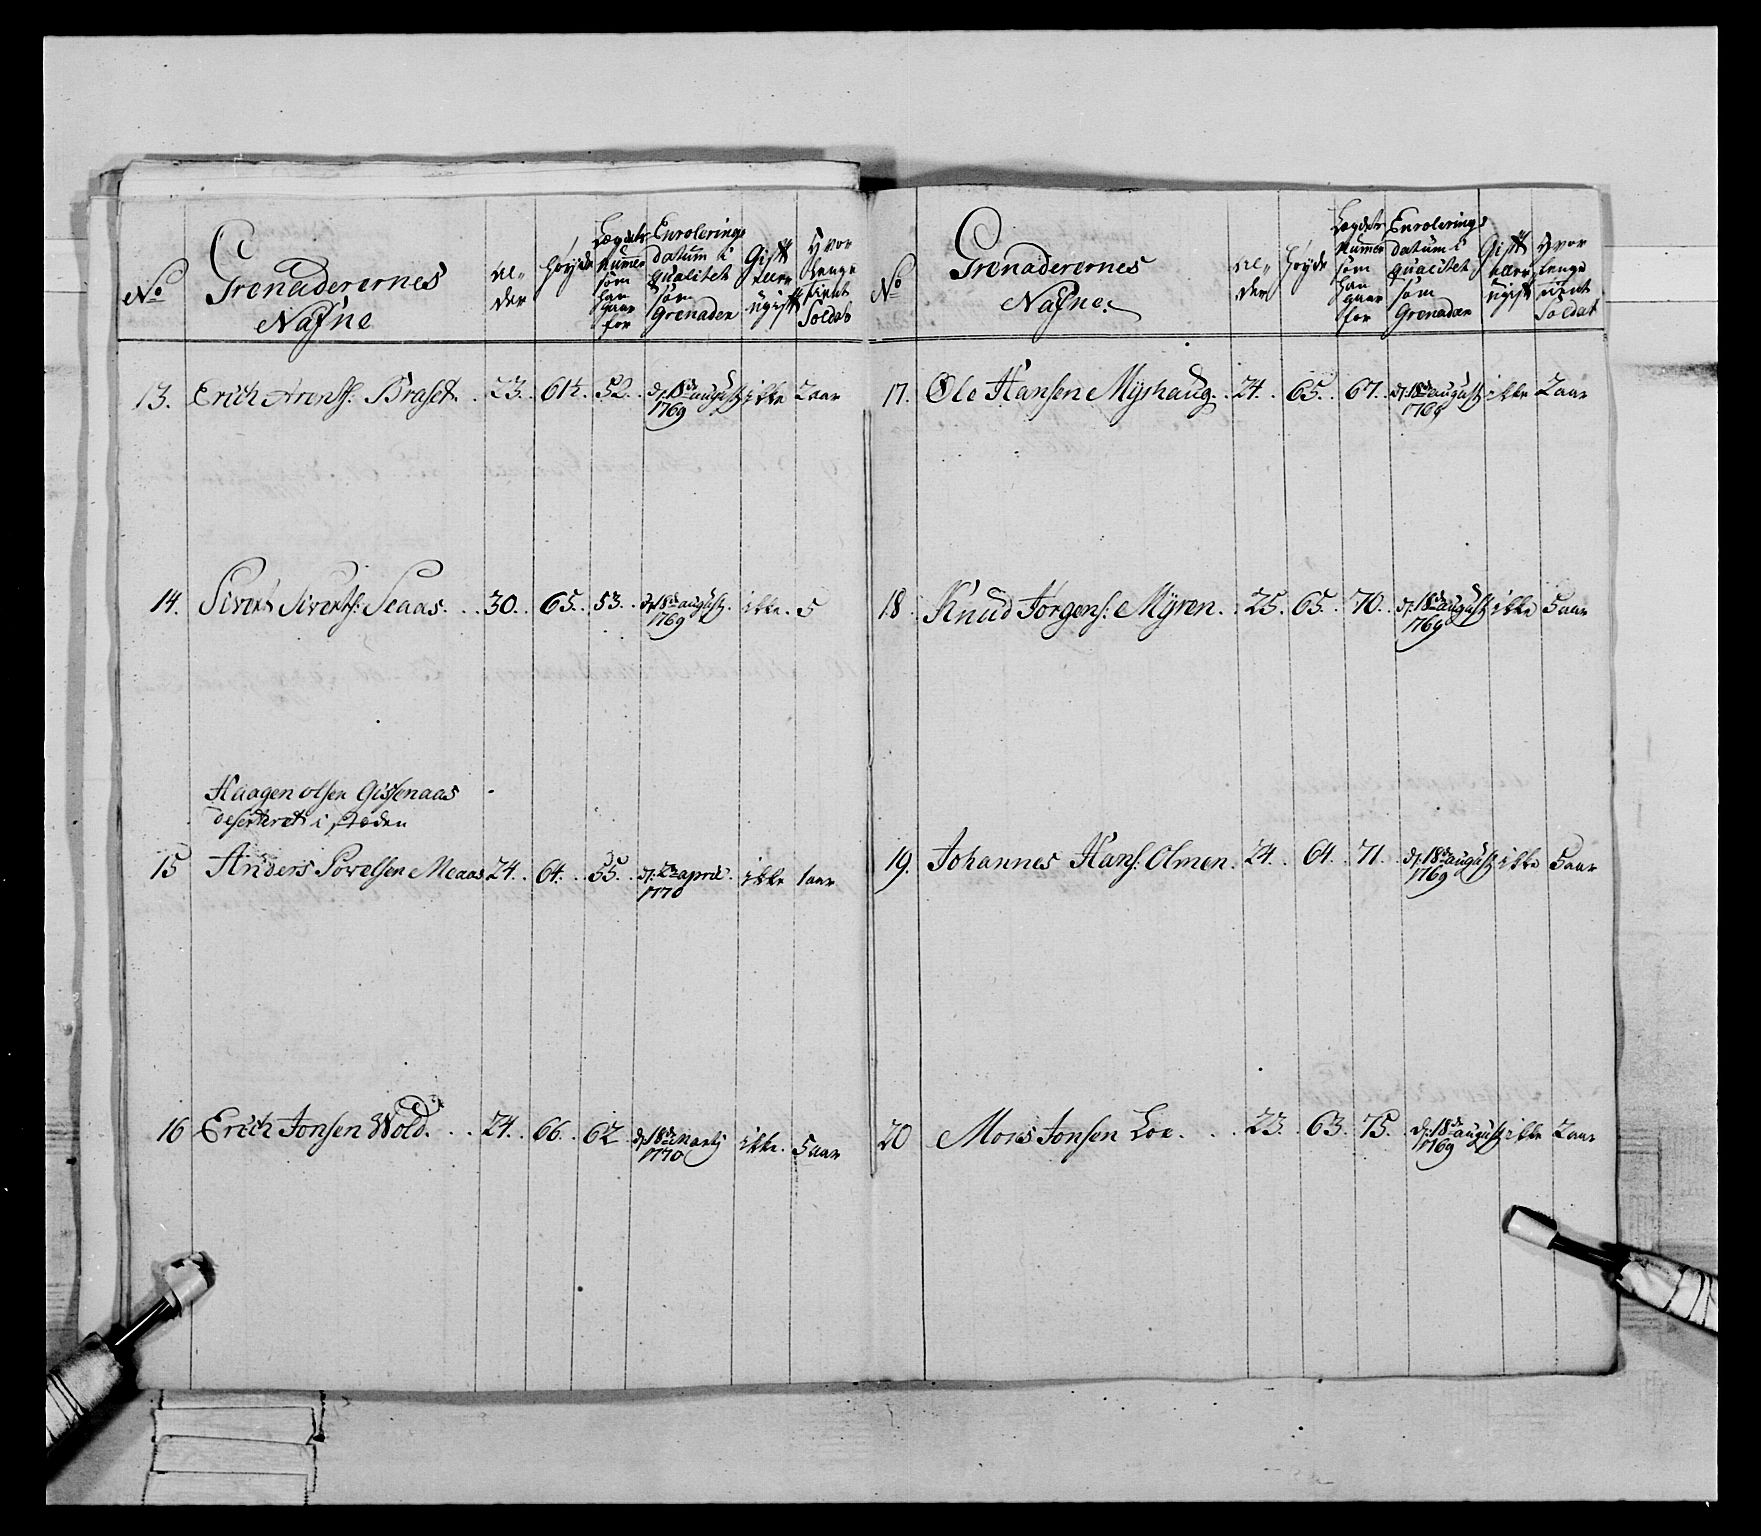 No
Grenaderernes
Nafne
Al-
der
Høyde
Lægdets
Numer
som
han
gaar
for
Enrolerings
datum i
qualitet
som
Grenader
Gift
eller
ugift
Hvor
lenge
tient
Soldat
13. Erich Arentz: Braset. 23. 61½ 52. dj 18de august ikke 2 aar
1769
14. Sivert Sivertz: Seaas. 30. 65. 53. dj 18de august. ikke. 5
1769
Haagen olsen Gissenaas
deserteret i
15 Anders Povelsen Meaas 24. 64. 55. april ikke 1 aar
1770
16 Erich Jonsen Wold. 24. 66. 62. dj 18de Martij ikke. 5 aar
1770
No
Grenaderernes
Nafne.
Al-
der
Høyde
Lægdets
Numer
som
han
gaar
for
Enrolerings
datum i
qualitet
som
Grenader
Gift
eller
ugift
Hvor
lenge
tient
Soldat
17. Ole Hansen Myrhaug. 24. 65. 67. dj 18de august ikke 2 aar
1769
18. Knud Jorgens: Myren. 25. 65. 70. dj. 18de august ikke 5 aar
1769
19. Johannes Hans: Olmen. 24. 64. 71. dj. 18de august ikke 5 aar
1769
20 Mons Jonsen Loe. 23. 63. 75. dj. 18de august ikke 2 aar
1769